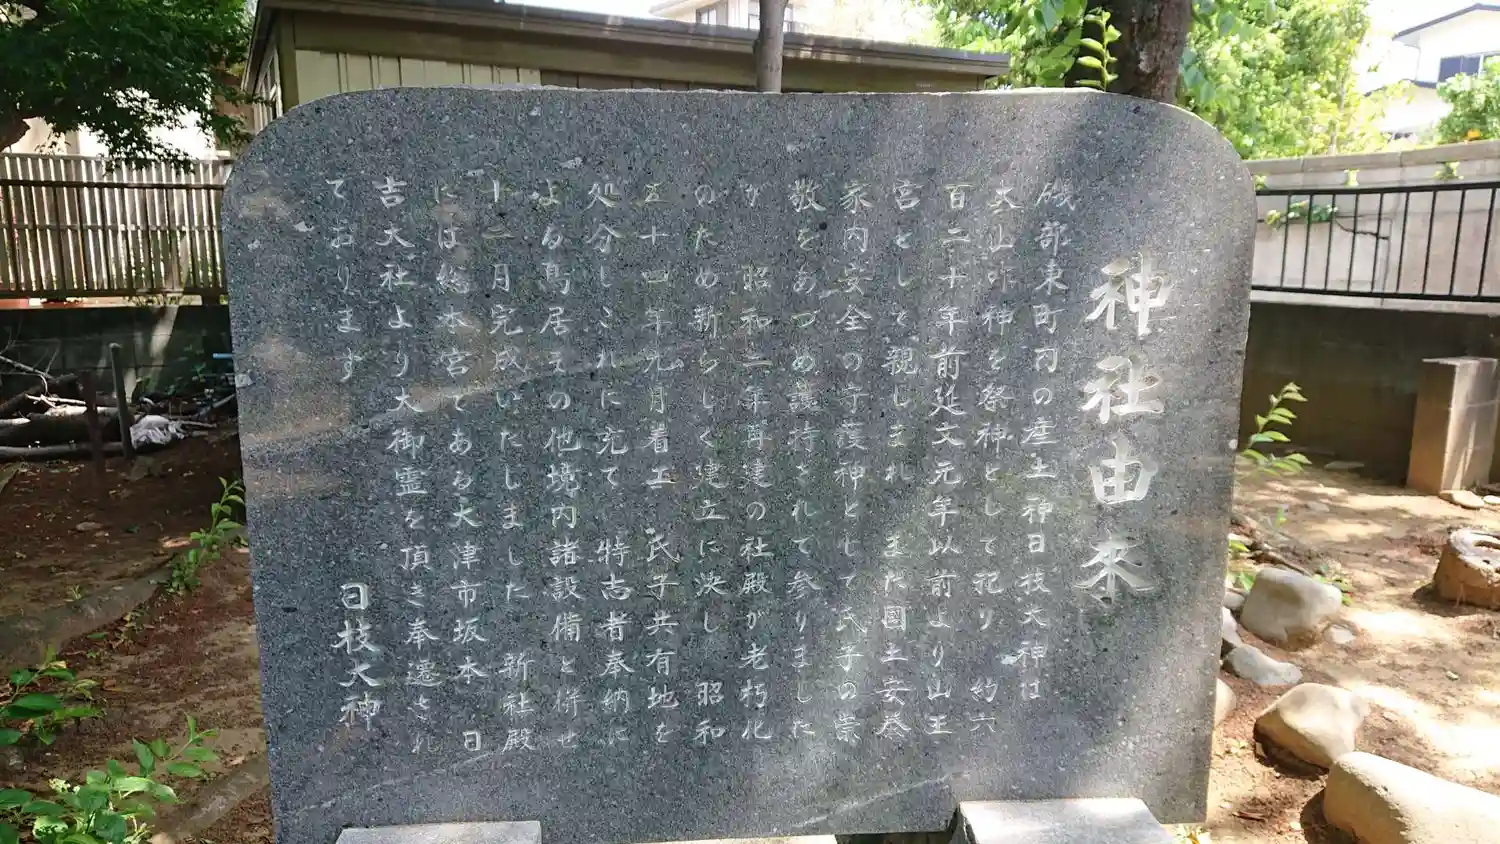 神社由来
磯部東町内の産土神日枝大神は
大山咋神を祭神として祀り 約六
百二十年前延文元年以前より山王
宮として親しまれ また國土安泰
家内安全の守護神として氏子の崇
敬をあつめ護持されて参りました
が 昭和二年再建の社殿が老朽化
のため新らしく建立に決し 昭和
五十四年九月着工 氏子共有地を
処分しこれに充て 特志者奉納に
よる鳥居その他境内諸設備と併せ
十二月完成いたしました 新社殿
には総本宮である大津市坂本 日
吉大社より大御霊を頂き奉遷され
ております
日枝大神